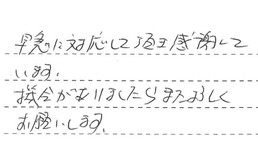 早急に対応して頂き感謝して
います。
機会がありましたらまたよろしく
お願いします。